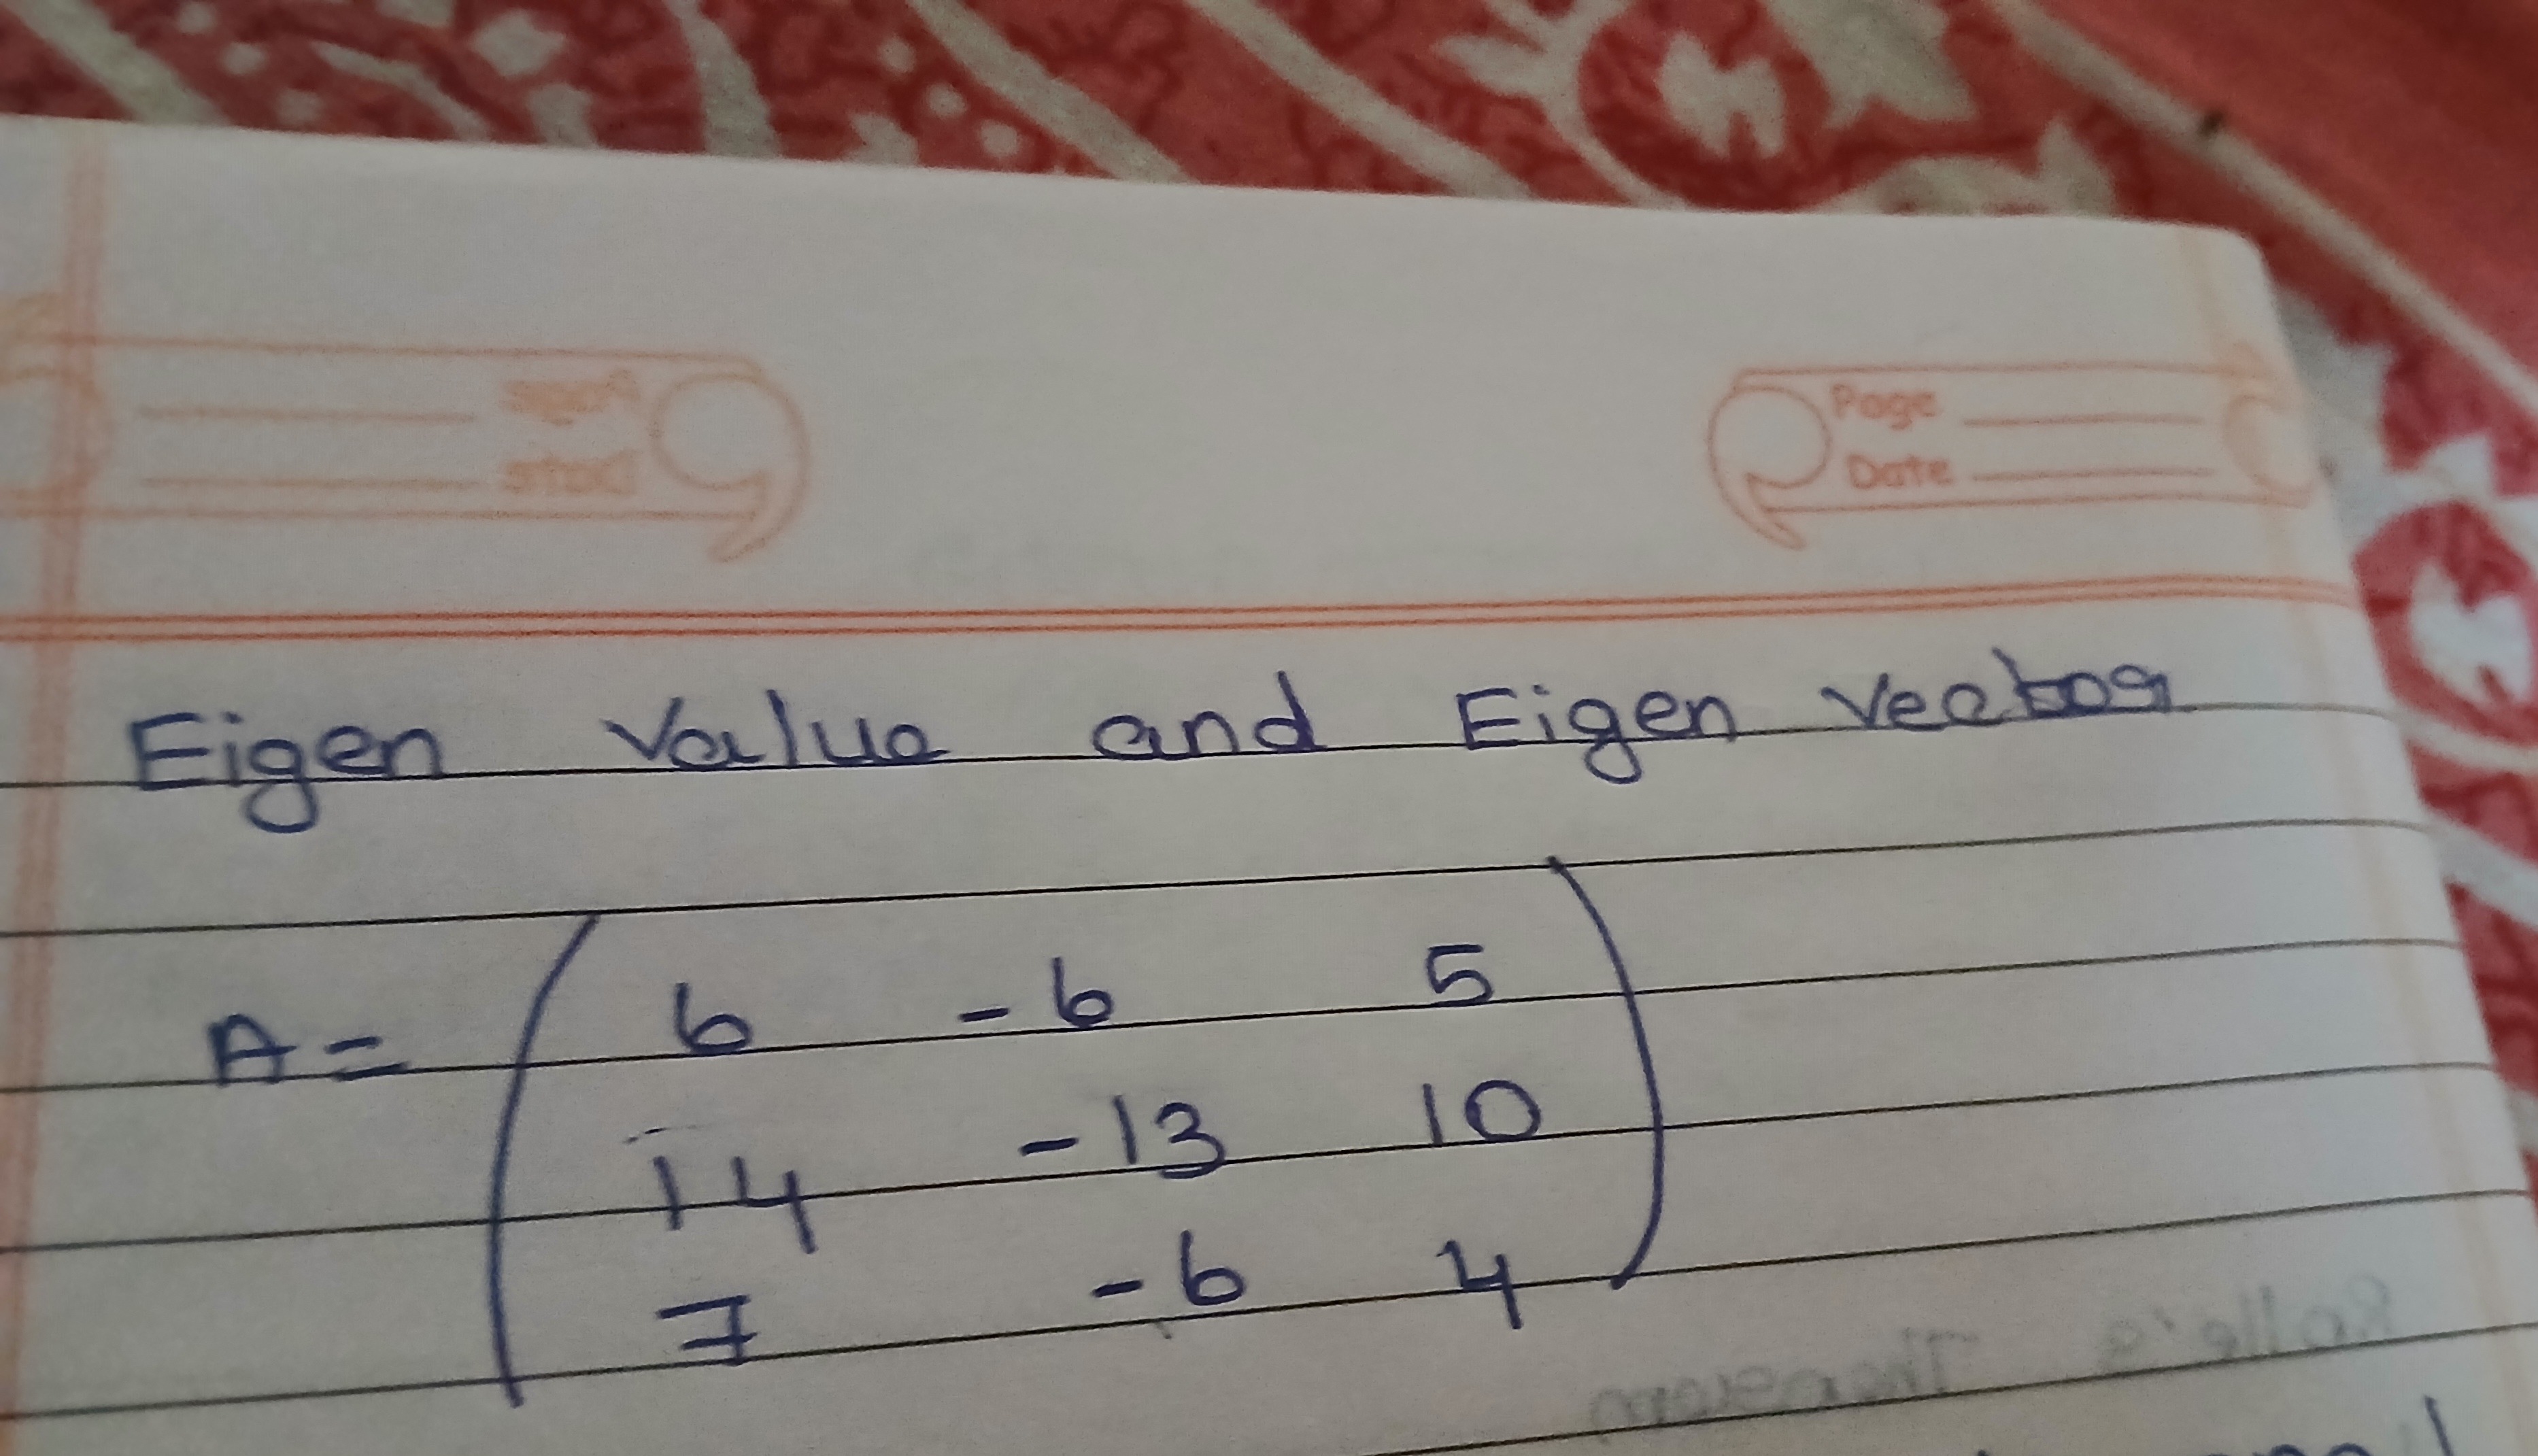 Page
Date
Eigen Value and Eigen Vector
A = ( 6 -6 5
14 -13 10
7 -6 4 )
Rolle's Theorem